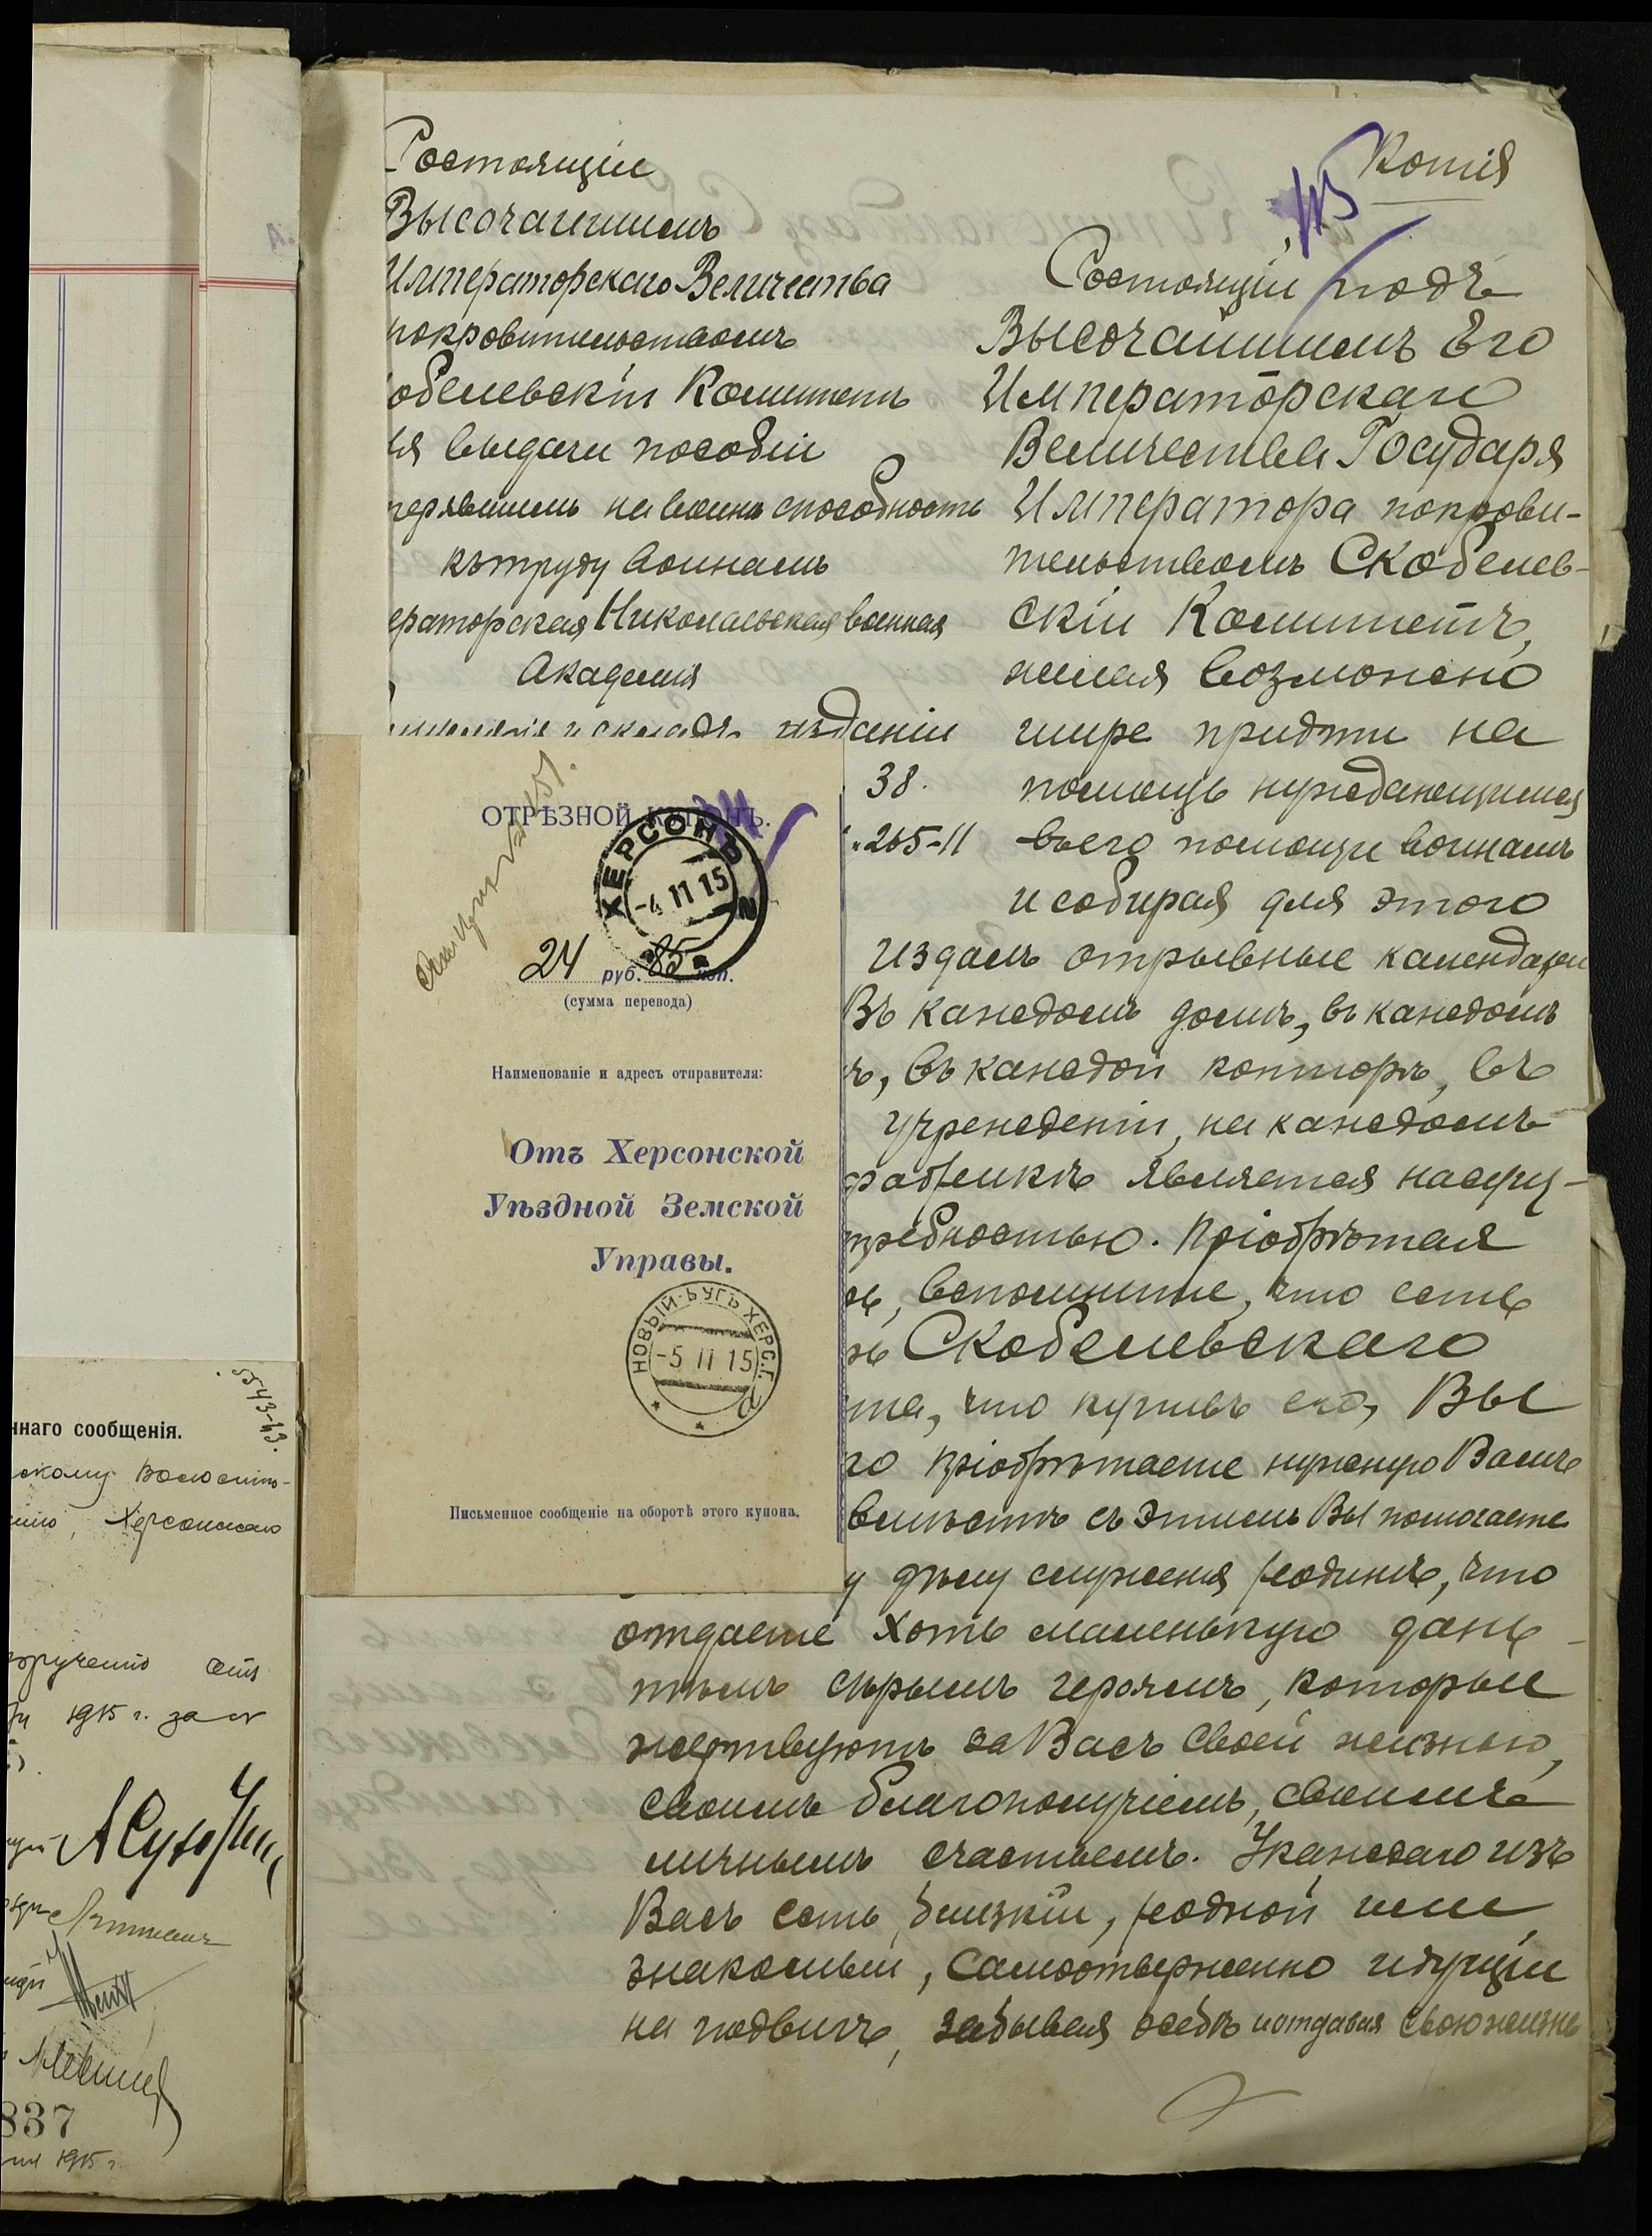 Копія
Состоящій
Высочайшимъ
Императорскаго Величества
покровительствомъ
обелевскій Комитетъ
ля выдачи пособій
терявшимъ на войнѣ способность
къ труду воинамъ
ераторская Николаевская военная
Академія
и складъ изданій
38.
265-11
Состоящій подъ
Высочайшимъ Его
Императорскаго
Величества Государя
Императора покрови-
тельствомъ Скобелев-
скій Комитетъ,
желая возможно
шире придти на
помощь нуждающимся
въ его помощи воинамъ
и собирая для этого
издалъ отрывные календари
Въ каждомъ домѣ, въ каждомъ
ѣ, въ каждой конторѣ, въ
учрежденіи, на каждомъ
фабрикѣ является насущ-
требностью. Пріобрѣтая
вспомните, что есть
Скобелевскаго
та, что купивъ его, Вы
го пріобрѣтаете нужную Вамъ
вмѣстѣ съ этимъ Вы помогаете
у дѣлу служенія родинѣ, что
отдаете хоть маленькую дань
тѣмъ сѣрымъ героямъ, которые
жертвуютъ за Васъ своей жизнью,
своимъ благополучіемъ, своимъ
личнымъ счастьемъ. У каждаго изъ
Васъ есть близкій, родной или
знакомый, самоотверженно идущій
на подвигъ, забывая о себѣ и отдавая свою жизнь
ОТРѢЗНОЙ КУПОНЪ.
ХЕРСОНЪ
-4 11 15
2
24 руб. 85 коп.
(сумма перевода)
Наименованіе и адресъ отправителя:
Отъ Херсонской
Уѣздной Земской
Управы.
НОВЫЙ-БУГЪ ХЕРС.Г.
-5 11 15
Письменное сообщеніе на оборотѣ этого купона.
5543-43.
ннаго сообщенія.
скому Волостно-
Херсонскаго
1915 г. за №
837
1915 г.